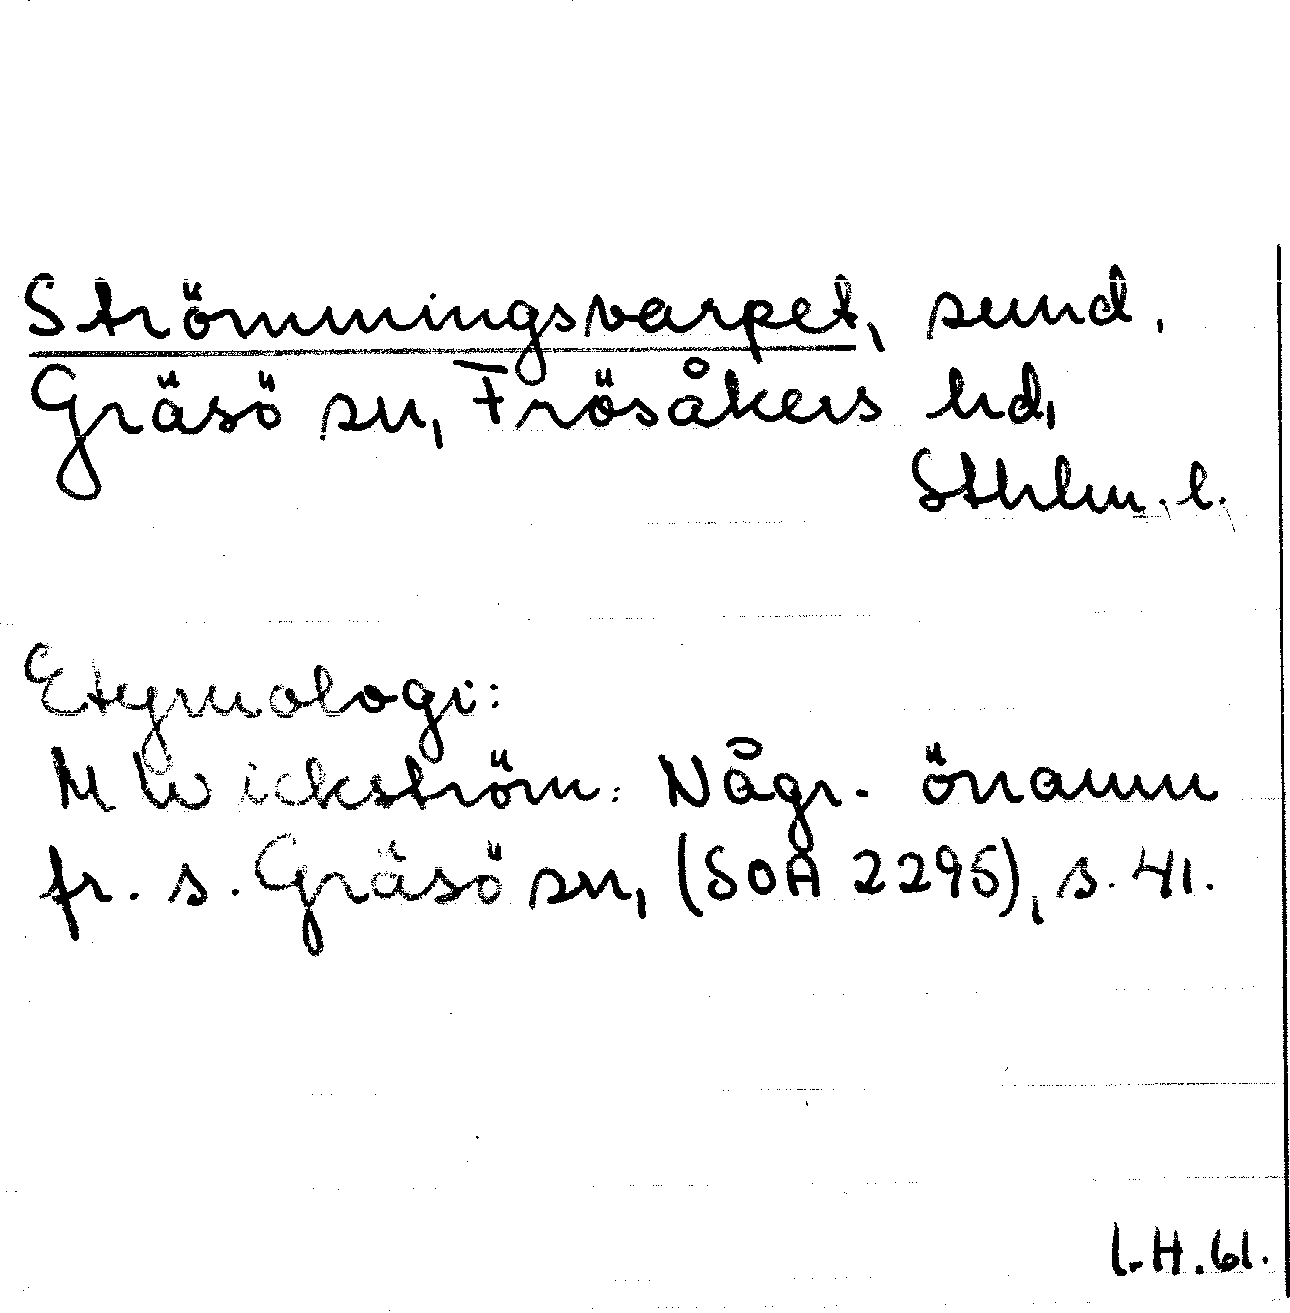 Strömmingsvarpet, sund.
Gräsö sn, Frösåkers hd,
Sthlm. l.
Etymologi:
M Wickström: Någr. önamn
fr. s. Gräsö sn, (SOA 2295), s. 41.
L.H.61.